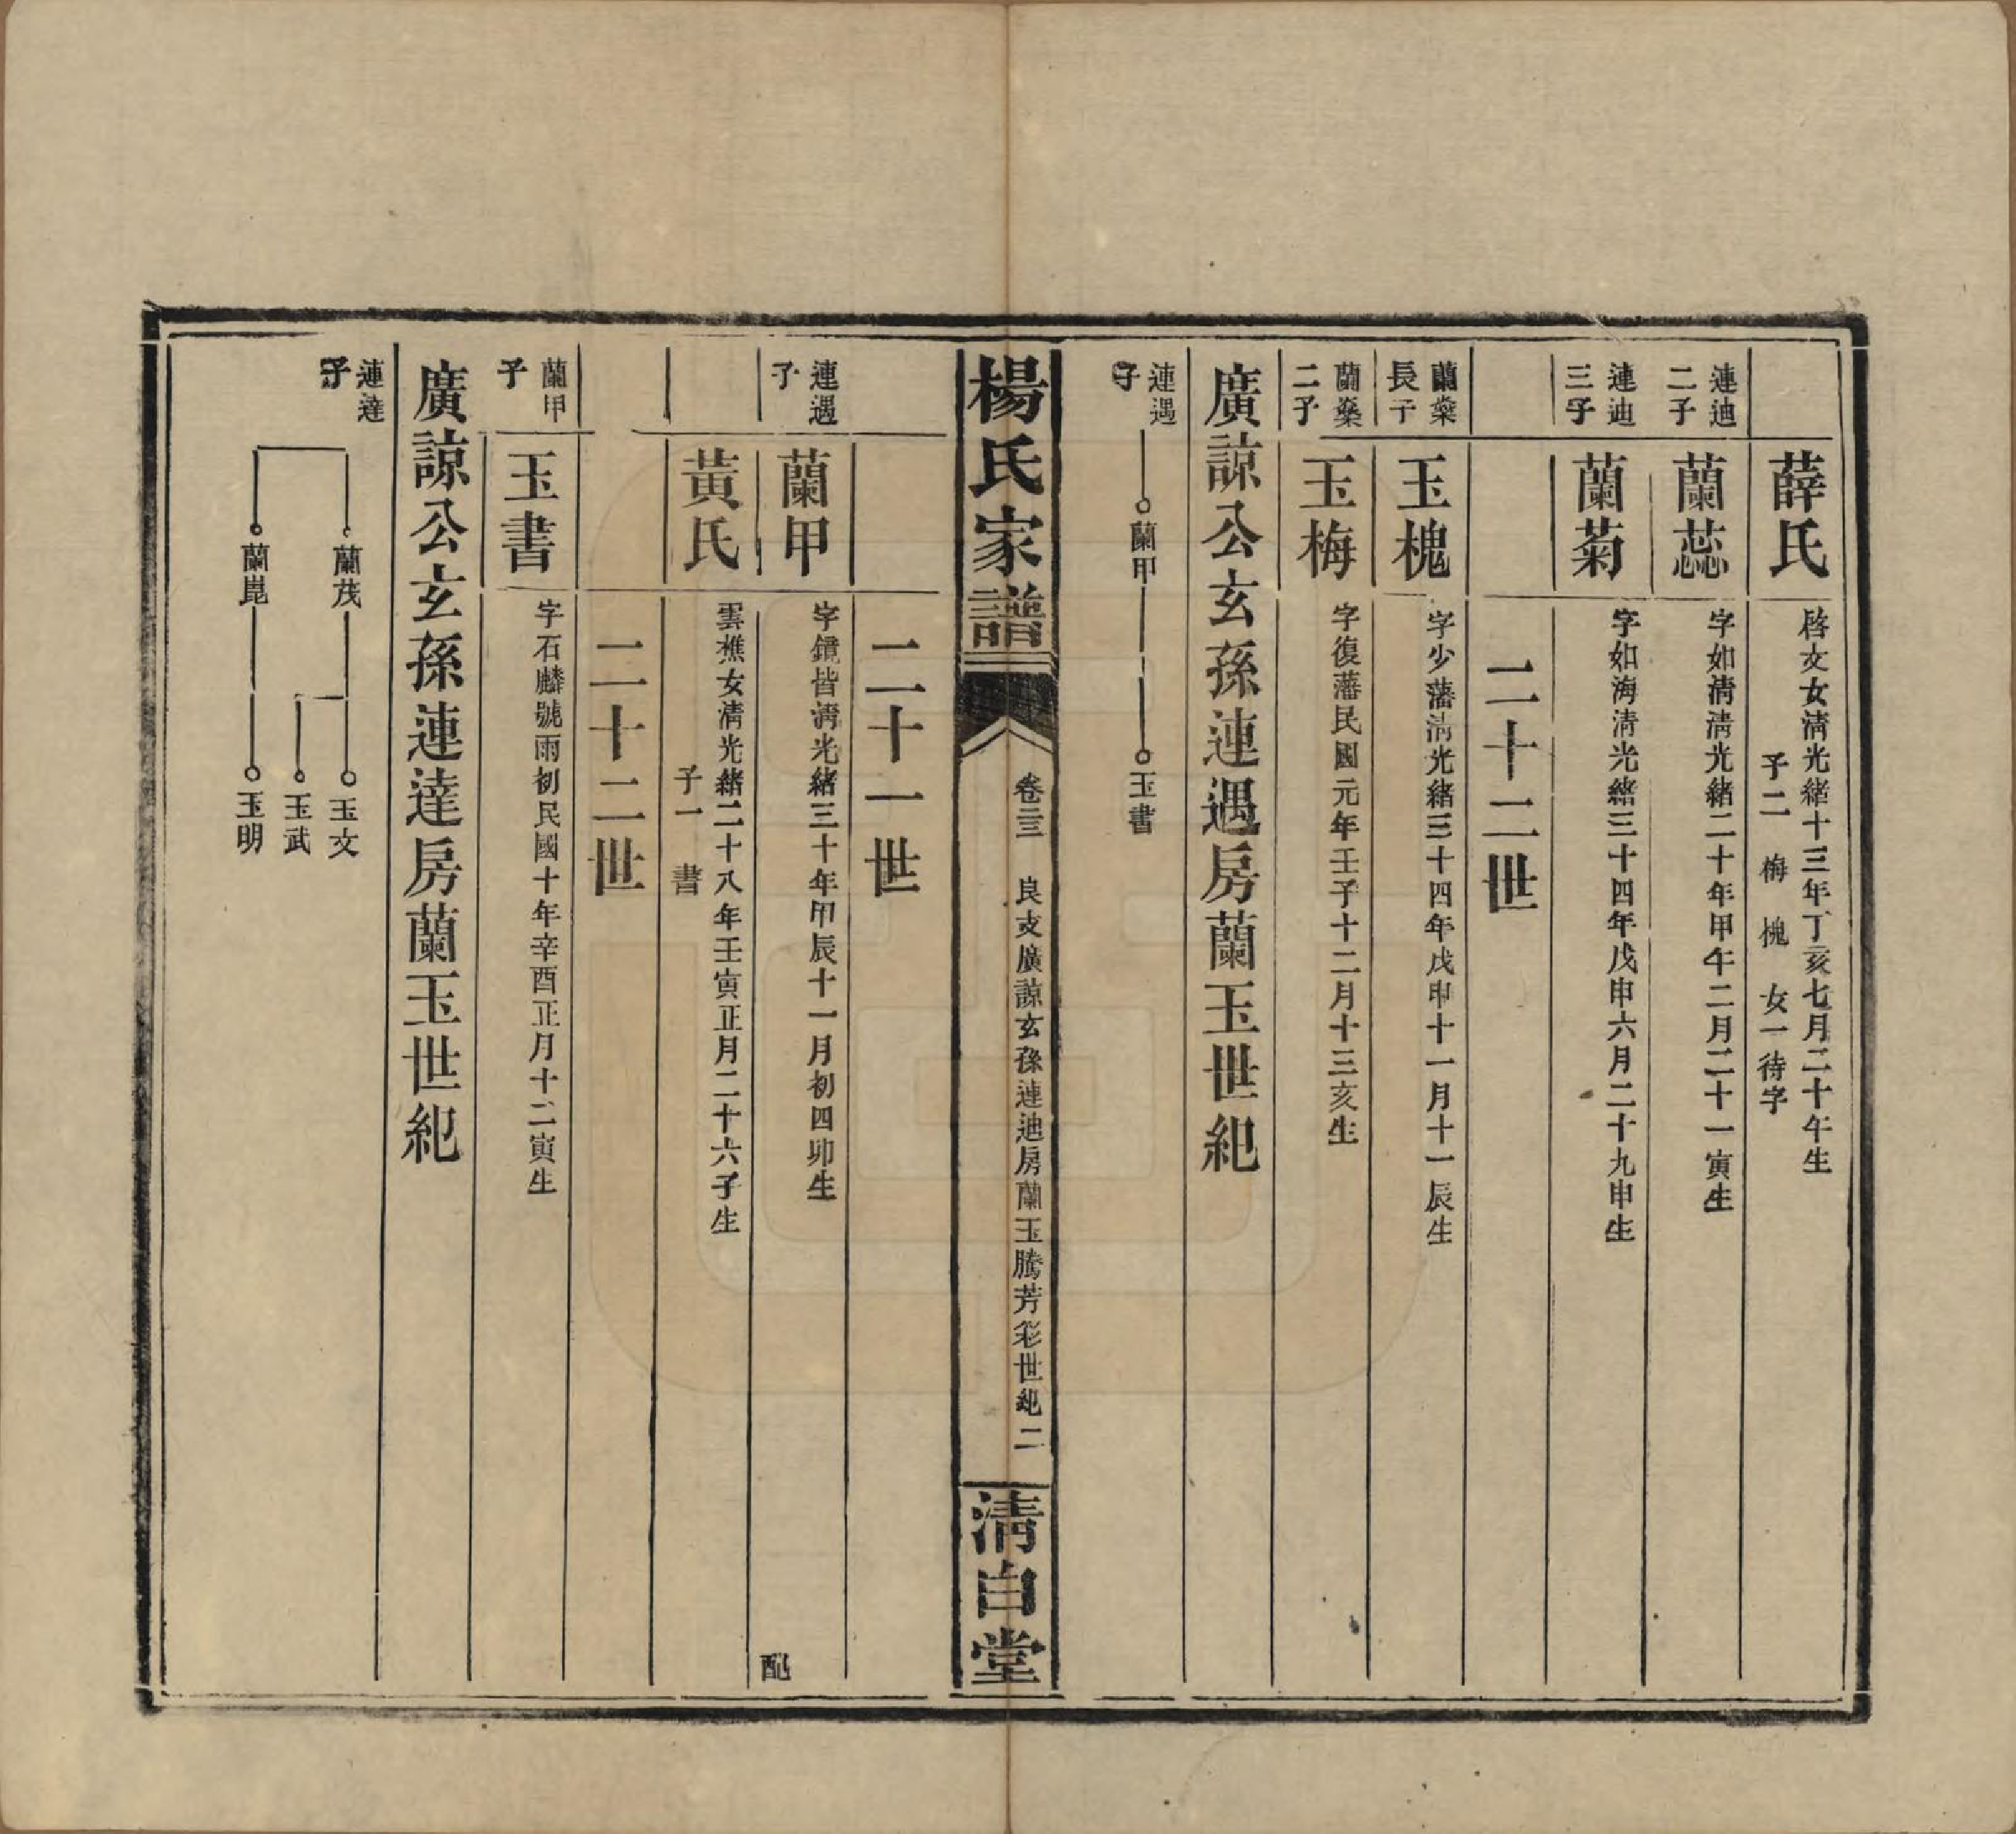 薛氏
啓文女淸光緒十三年丁亥七月二十午生
子二 梅 槐 女一待字
連迪二子
蘭蕊
字如淸淸光緒二十年甲午二月二十一寅生
連迪三子
蘭菊
字如海淸光緒三十四年戊申六月二十九申生
二十二世
蘭蘂長子
玉槐
字少藩淸光緒三十四年戊申十一月十一辰生
蘭蘂二子
玉梅
字復藩民國元年壬子十二月十三亥生
廣諒公玄孫連遇房蘭玉世紀
連遇子
蘭甲
玉書
楊氏家譜
卷三三 良支廣諒玄孫連迪房蘭玉騰芳彩世紀 二
淸白堂
二十一世
連遇子
蘭甲
字鏡皆淸光緒三十年甲辰十一月初四卯生
配
黃氏
雲樵女淸光緒二十八年壬寅正月二十六子生
子一 書
二十二世
蘭甲子
玉書
字石麟號雨初民國十年辛酉正月十二寅生
廣諒公玄孫連達房蘭玉世紀
連達子
蘭茂
玉文
玉武
蘭崑
玉明